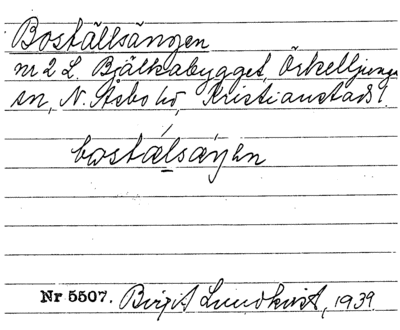 Boställsängen
nr 2 L. Bjälkabygget, Örkelljunga
sn, N. Åsbo hd, Kristianstads l.
bostälsæŋen
Nr 5507. Birgit Lundkvist, 1939.